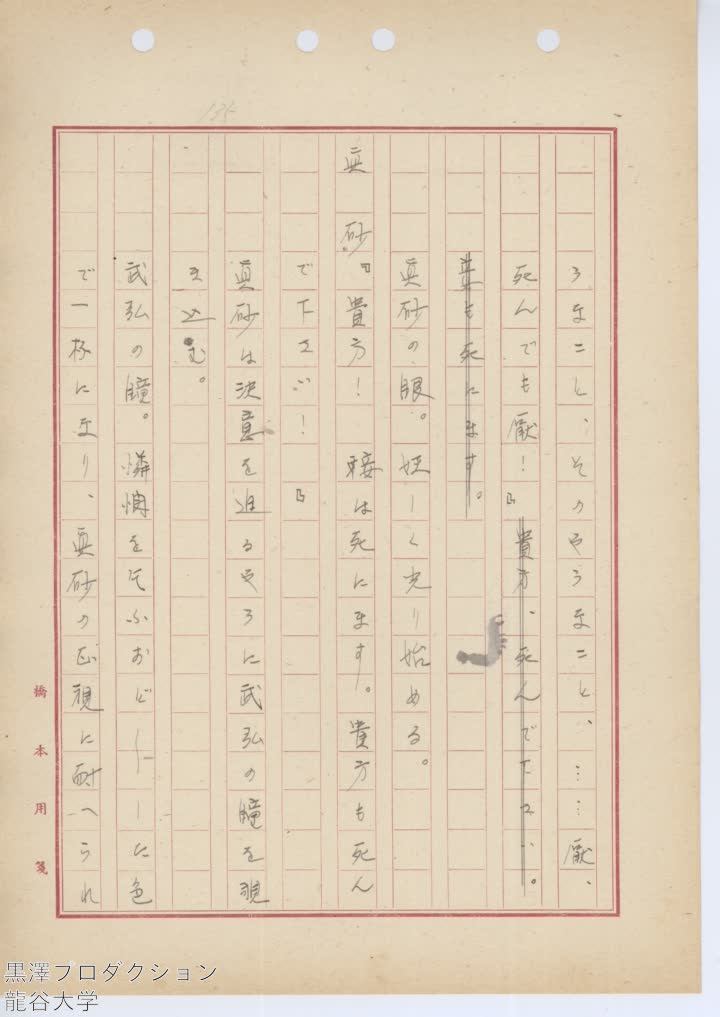 うなこと、そのやうなこと、……厭、
死んでも厭！』貴方、死んで下さい。
妾も死にます。
真砂の眼。妖しく光り始める。
真　砂『貴方！　妾は死にます。貴方も死ん
で下さい！　』
真砂は決意を迫るやうに武弘の瞳を覗
き込む。
武弘の瞳。憐憫を乞ふおど〱した色
で一杯になり、真砂の正視に耐へられ
橋本用箋
黒澤プロダクション
龍谷大学